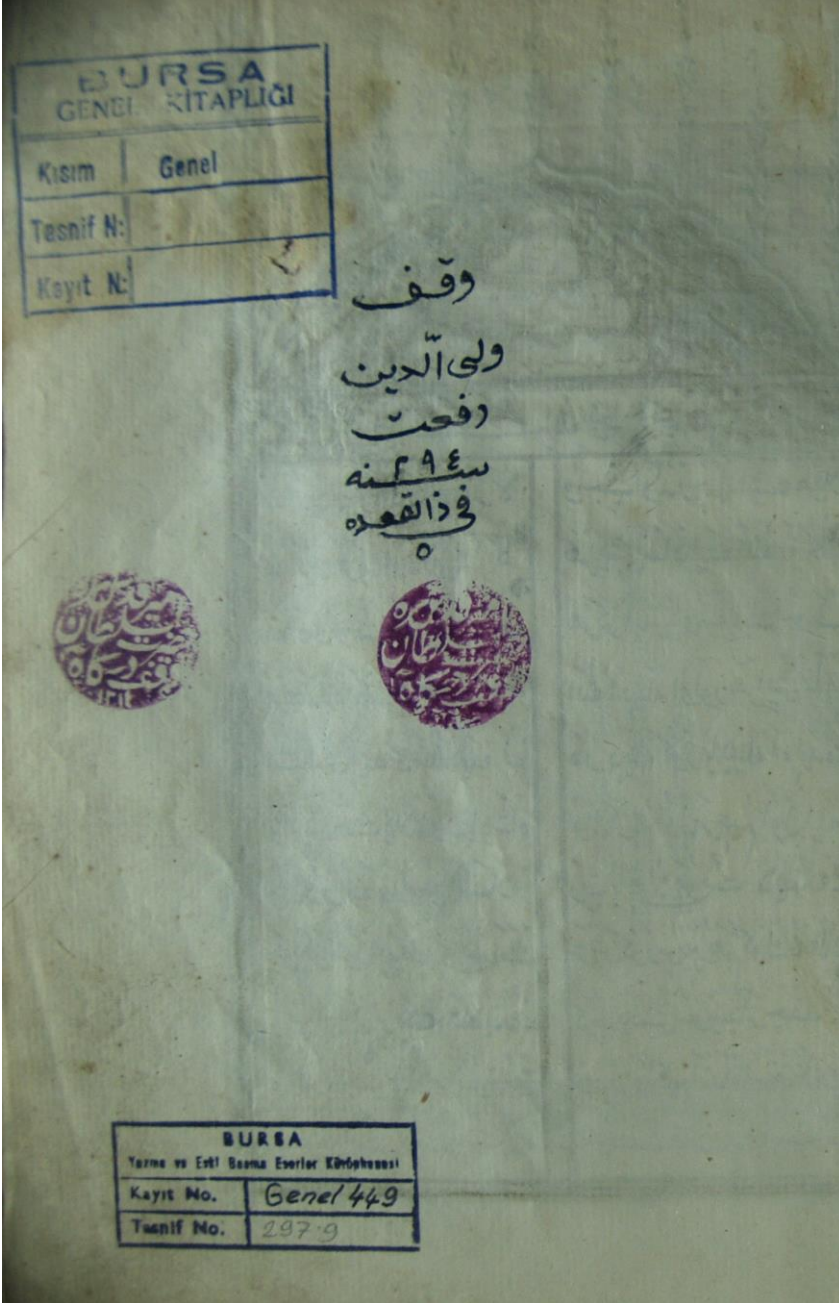 BURSA
GENEL KİTAPLIĞI
Kısım Genel
Tasnif N:
Kayıt N:
وقف
ولى الّدين
رفعت
سنه ٢٩٤
فى ذا القعده
٥
سلطان
سلطان
BURSA
Yazma ve Eski Basma Eserler Kütüphanesi
Kayıt No. Genel 449
Tasnif No. 297.9